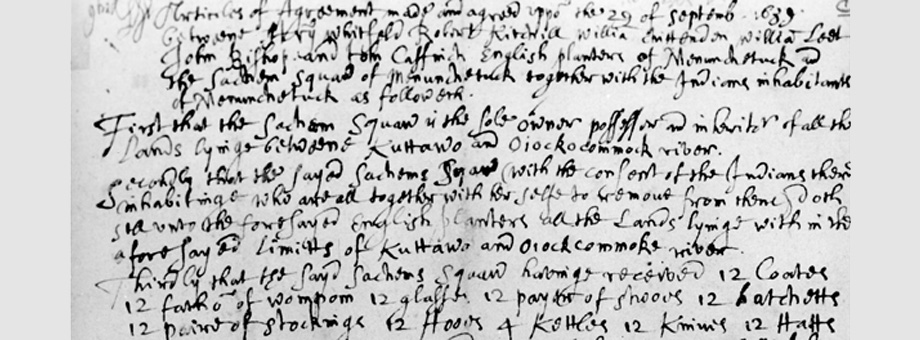 Articles of Agreement made and agreed uppō the 29 of Septemb. 1639
betweene Hēry Whitfeld Robert Kitchill Williā Chittenden Williā Leet
John Bishop and Tom Caffinch English planters of Menunchetuck and
the Sachem Squaw of Menunchetuck together with the Indians inhabitants
of Menunchetuck as followeth.
First that the Sachem Squaw is the sole owner possessor and inheritor of all the
Lands lyinge betweene Kuttawo and Oiockocommock river.
Secondly that the sayed Sachems Squaw with the consent of the Indians there
inhabitinge who are all together with her selfe to remove from thence doth
sell unto the foresayed English planters all the Lands lyinge with in the
afore sayed Limitts of Kuttawo and Oiockcommoke river
Thirdly that the sayd Sachems Squaw haveinge received 12 Coates
12 fathō of wompom 12 glasses 12 payer of shooes 12 hatchetts
12 paire of stockings 12 Hooes 4 Kettles 12 Knives 12 Hatts